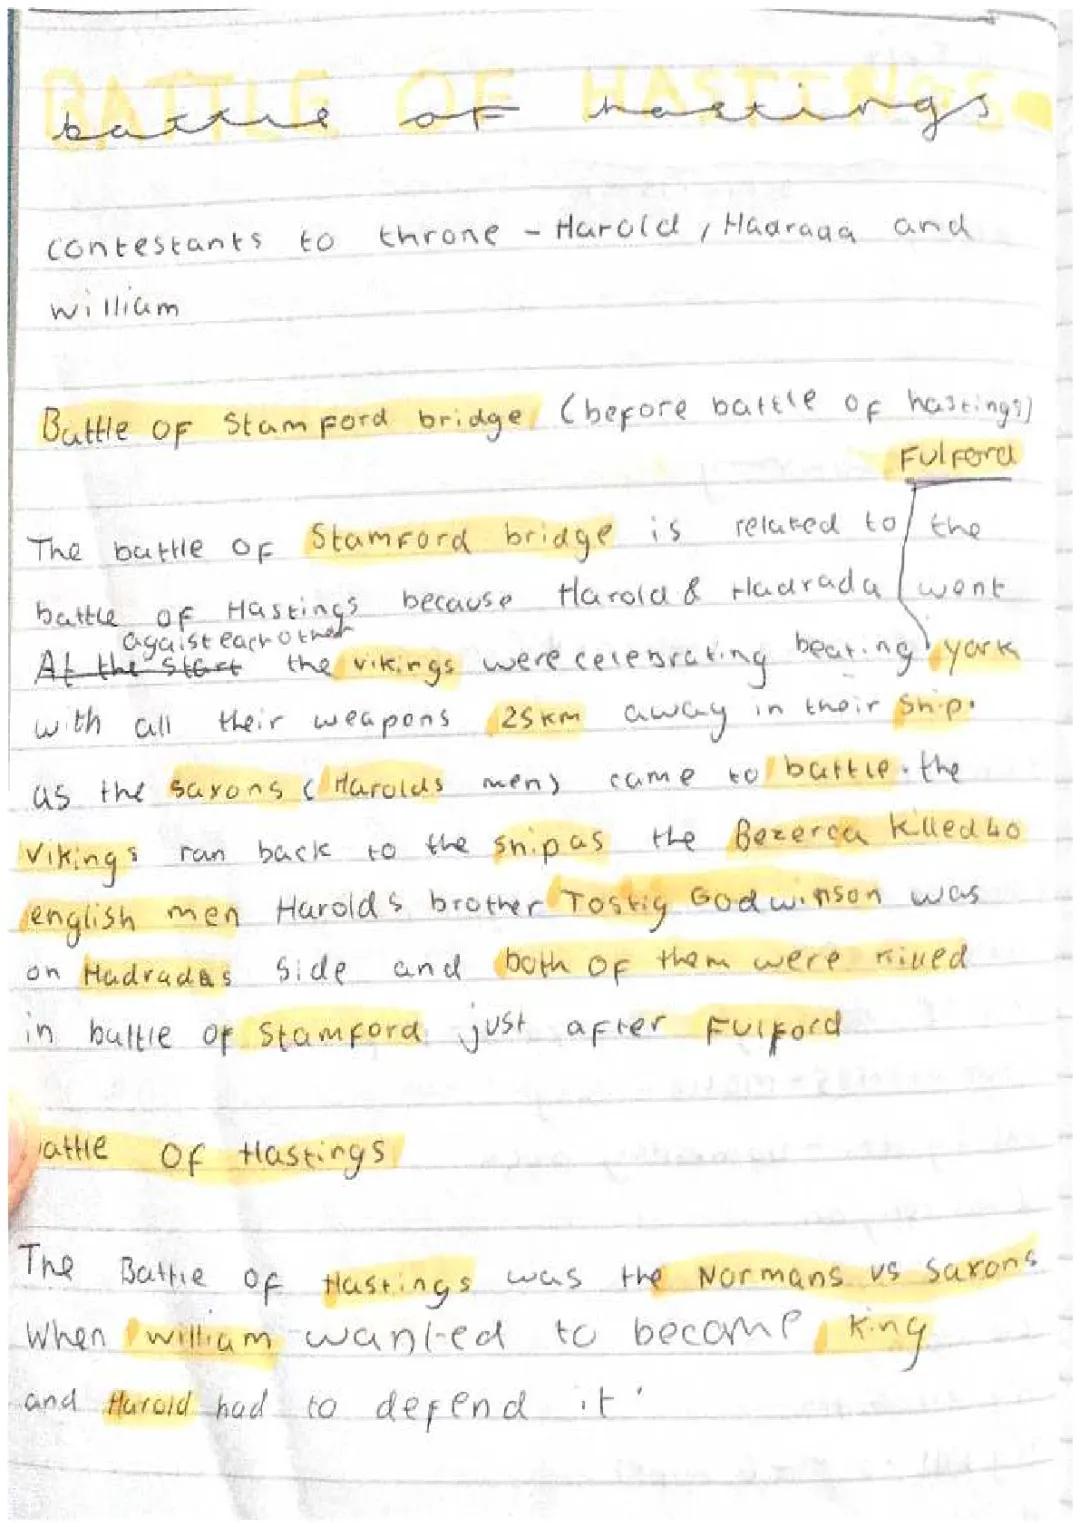 BATTLE OF HASTINGS
battle of hastings
contestants to throne - Harold, Hadrada and
william
Battle OF Stamford bridge (before battle of hastings)
Fulford
The battle OF Stamford bridge is related to the
battle of Hastings because Harold & Hadrada went
agaist each other
At the start the vikings were celebrating beating york
with all their weapons 25km away in their ship.
as the saxons (Harolds men) came to battle. the
Vikings ran back to the ship as the Bezerca killed 40
english men Harolds brother Tostig Godwinson was
on Hadradas side and both of them were killed
in battle of Stamford just after Fulford
attle OF Hastings
The Battle OF Hastings was the Normans vs Saxons
When william wanted to become King
and Harold had to defend it.